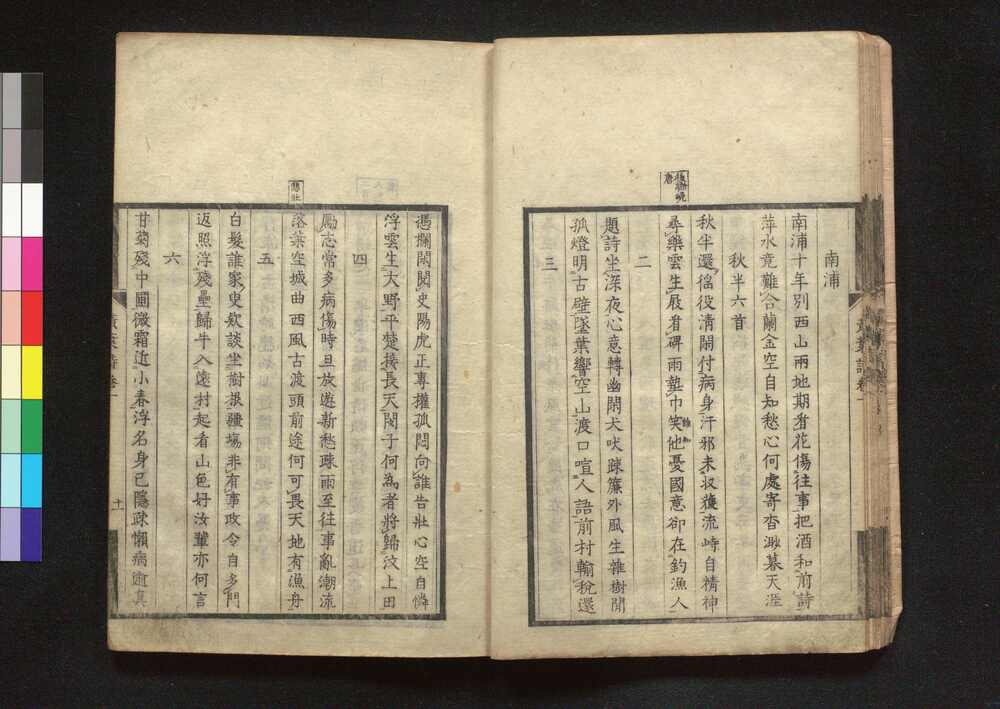 南浦
南浦十年別西山兩地期看花傷往事把酒和前詩
萍水竟難合蘭金空自知愁心何處寄杳渺暮天涯
秋半六首
秋半還徭役清閒付病身汗邪未收穫流峙自精神
尋藥雲生屐看碑雨墊巾笑他憂國意卻在釣漁人
二
題詩坐深夜心意轉幽閒犬吠疎簾外風生雜樹間
孤燈明古壁墜葉響空山渡口喧人語前村輸稅還
三
憑攔閑閱史陽虎正專權孤悶向誰告壯心空自憐
浮雲生大野平楚接長天閔子何為者將歸汶上田
四
勵志常多病傷時且放遊新愁疎雨至往事亂潮流
落葉空城曲西風古渡頭前途何可畏天地有漁舟
五
白髮誰家叟欸談坐樹根疆場非有事政令自多門
返照浮殘壘歸牛入遠村起看山色好汝輩亦何言
六
甘菊殘中圃微霜近小春浮名身已隱疎懶病逾真
後聯晚唐
悲壯
黃葉詩卷一
十一